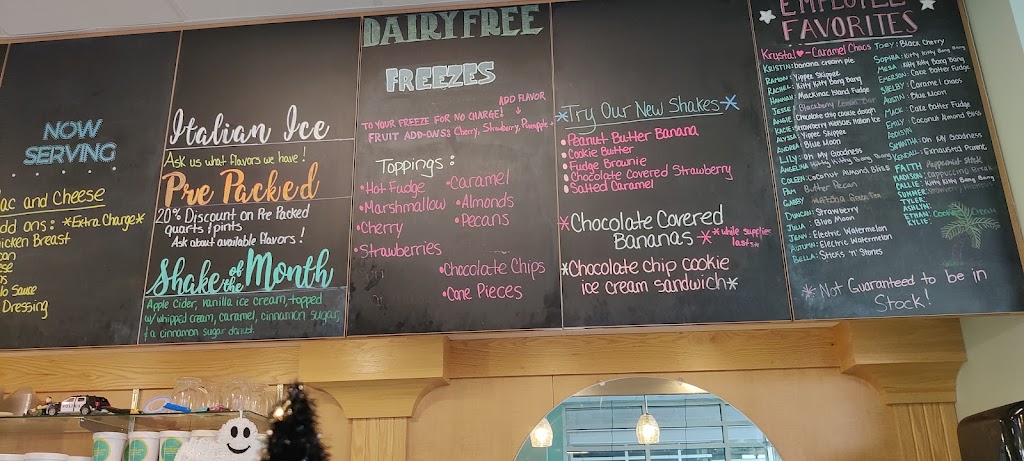 NOW
SERVING
ac and Cheese
dd ons: *Extra Charge*
icken Breast
Sauce
Dressing
Italian Ice
Ask us what flavors we have!
Pre Packed
20% Discount on Pre Packed
quarts/pints
Ask about available flavors!
Shake of the Month
Apple Cider, vanilla ice cream, topped
w/ whipped cream, caramel, cinnamon sugar,
& a cinnamon sugar donut.
DAIRY FREE
FREEZES
ADD FLAVOR
TO YOUR FREEZE FOR NO CHARGE!
FRUIT ADD-ONS: Cherry, Strawberry, Pineapple
Toppings:
•Hot Fudge
•Marshmallow
•Cherry
•Strawberries
•Caramel
•Almonds
•Pecans
•Chocolate Chips
•Cone Pieces
*Try Our New Shakes*
•Peanut Butter Banana
•Cookie Butter
•Fudge Brownie
•Chocolate Covered Strawberry
•Salted Caramel
*Chocolate Covered
Bananas *
*while supplies
last
*Chocolate chip cookie
ice cream sandwich*
EMPLOYEE
FAVORITES
Krystal♥-Caramel Chaos
KRISTIN: banana cream pie
RAMON: Yippee Skippee
RACHEL: Kitty Kitty Bang Bang
HANNAH: Mackinac Island Fudge
JESSE: Blackberry Lemon Bar
ANGIE: Chocolate chip cookie dough
KACIE: Strawberry Hawaiian Italian Ice
ALYSSA: Yippee Skippee
ANDREA: Blue Moon
LILY: Oh My Goodness
ANGELINA: Kitty Kitty Bang Bang
COLEEN: Coconut Almond Bliss
PAM: Butter Pecan
GABBY: Matcha Green Tea
DUNCAN: Strawberry
JULIA: Blue Moon
JENN: Electric Watermelon
AUTUMN: Electric Watermelon
BELLA: Sticks 'n' Stones
TOBY: Black Cherry
SOPHIA: Kitty Kitty Bang Bang
MESA: Kitty Kitty Bang Bang
EMERSON: Cake Batter Fudge
SHELBY: Caramel Chaos
AUSTIN: Blue Moon
MACK: Cake Batter Fudge
EMILY: Coconut Almond Bliss
ADDISYN:
SAMANTHA: Oh My Goodness
KENDEL:
FAITH: Peppermint Stick
MADISON: Cappuccino Break
CALLIE: Kitty Kitty Bang Bang
SUMMER:
TYLER:
ASHLYN:
ETHAN:
KYLIE:
* Not Guaranteed to be in
Stock!
POLICE